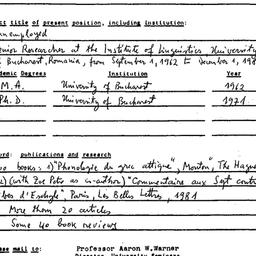 ct title of present position, including institution:
nemployed
enior Researcher at the Institute of Linguistics, University
Bucharest, Romania, from September 1, 1962 to December 1, 198
ademic Degrees Institution Year
M.A. University of Bucharest 1962
Ph.D. University of Bucharest 1971
ord: publications and research
wo books: 1) "Phonologie du grec attique", Mouton, The Hague
2) (with Zoe Petre as co-author) "Commentaire aux Sept contre
bes d'Eschyle", Paris, Les Belles Lettres, 1981
More than 20 articles
Some 40 book reviews
ase mail to: Professor Aaron W. Warner